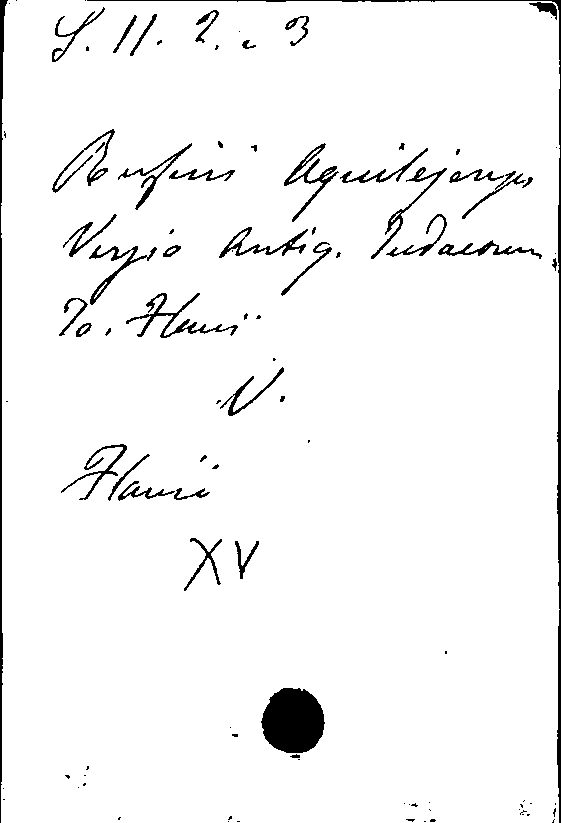 S. II. 2. e 3
Rufini Aquilejensis
Versio Antiq. Judaeorum
Jo. Flavii
V.
Flavii
XV